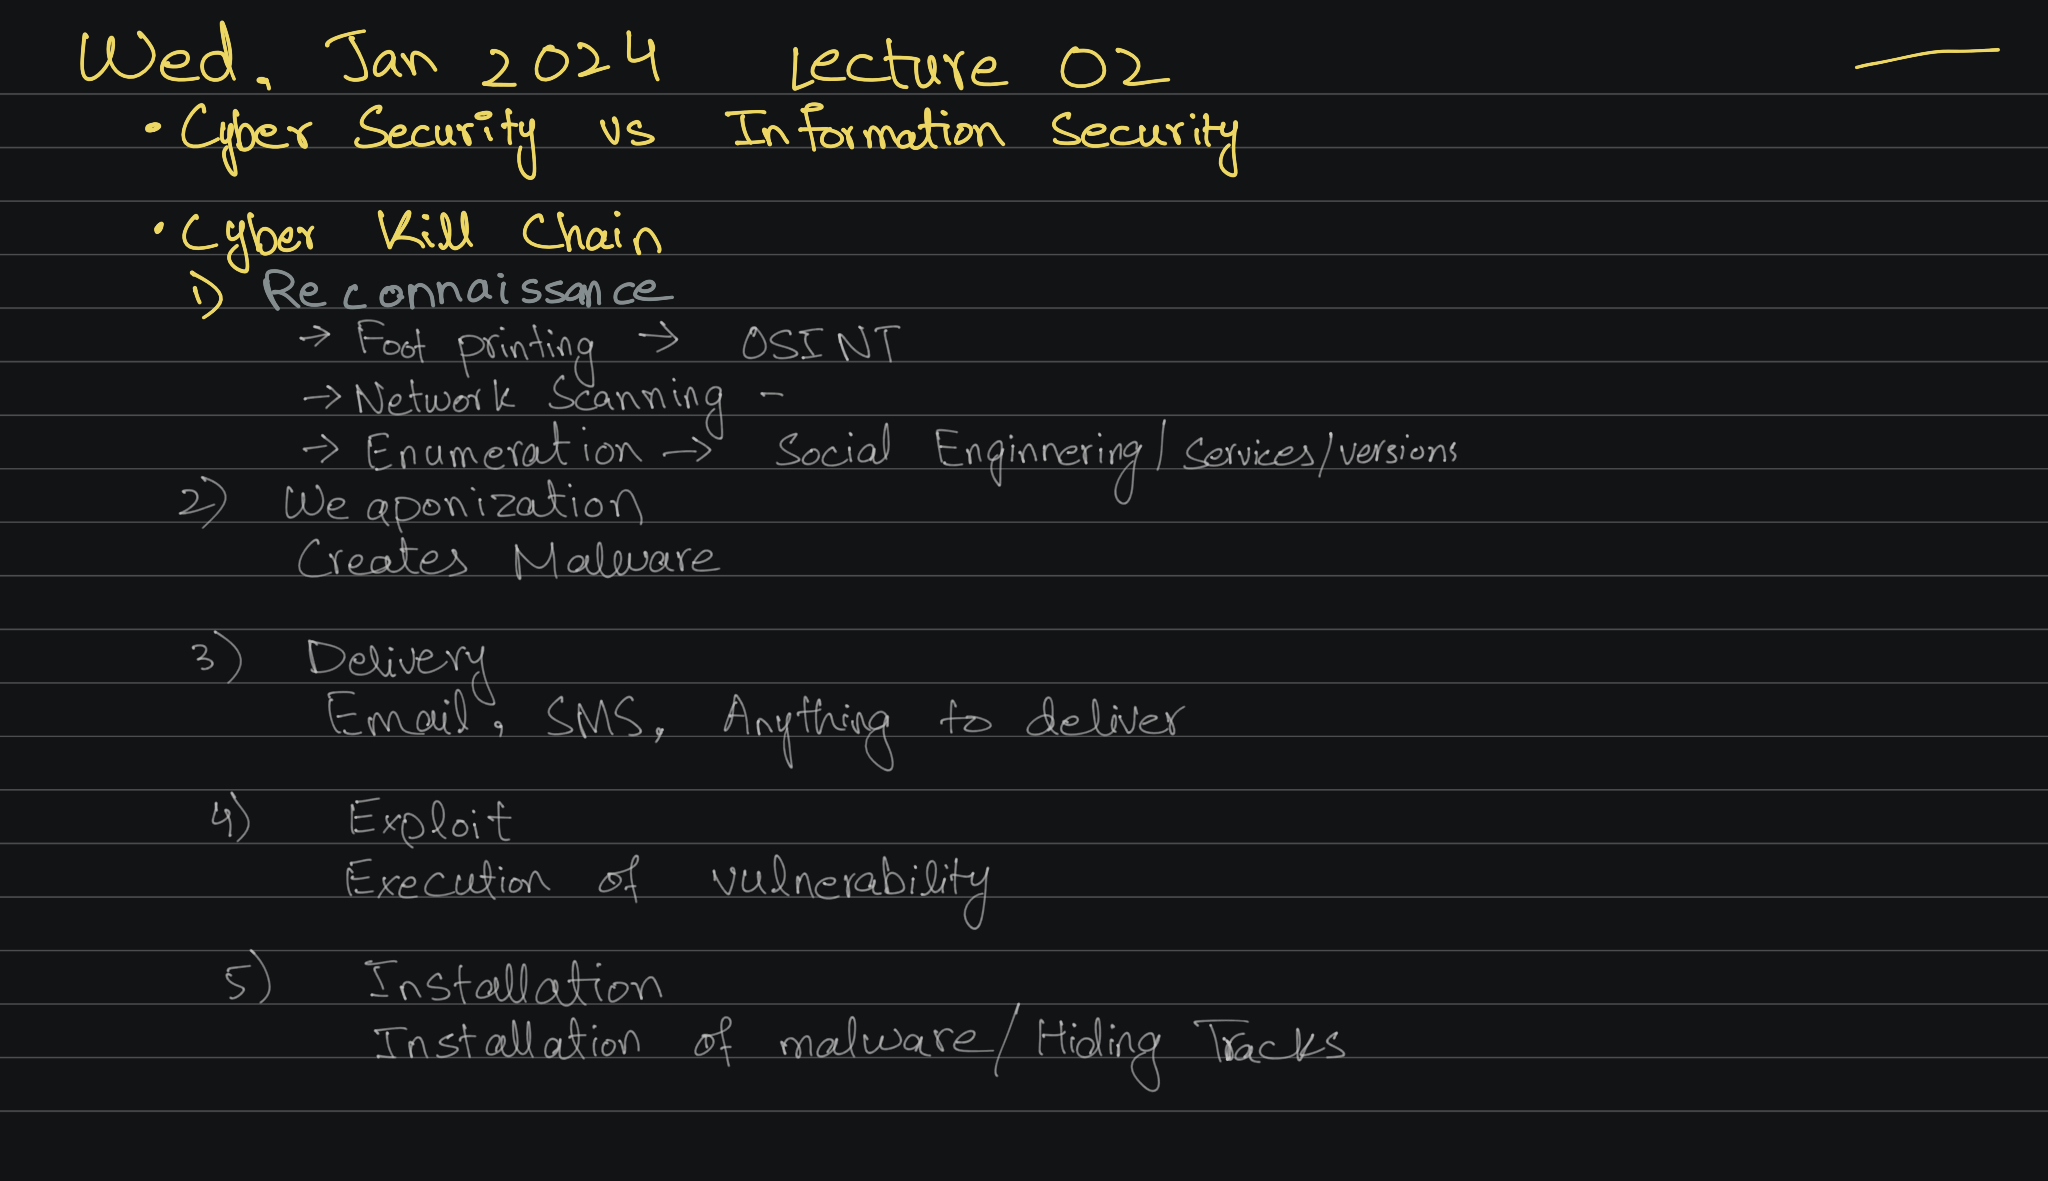 Wed, Jan 2024 Lecture 02
• Cyber Security vs Information Security
• Cyber Kill Chain
1) Reconnaissance
→ Foot printing → OSINT
→ Network Scanning -
→ Enumeration → Social Enginnering / Services / versions
2) Weaponization
Creates Malware
3) Delivery
Email, SMS, Anything to deliver
4) Exploit
Execution of vulnerability
5) Installation
Installation of malware / Hiding Tracks